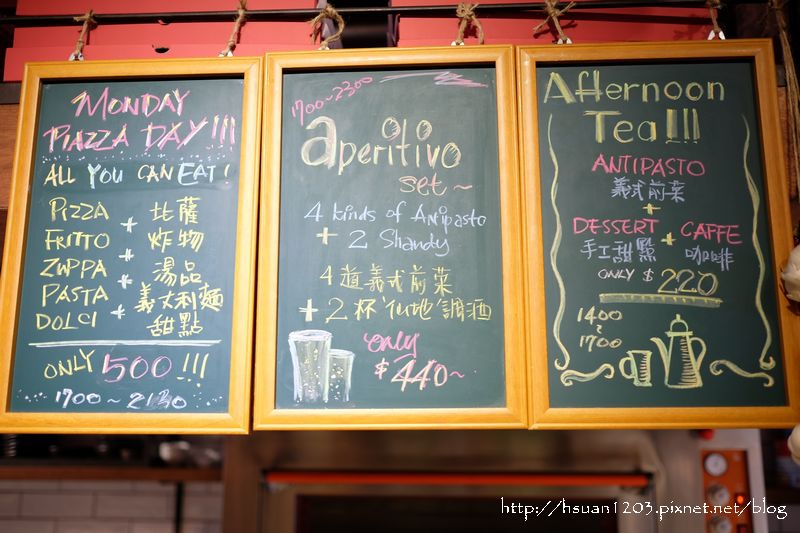 MONDAY
PIAZZA DAY!!!
ALL YOU CAN EAT!
PIZZA + 比薩
FRITTO + 炸物
ZUPPA + 湯品
PASTA + 義大利麵
DOLCI 甜點
ONLY 500!!!
1700~2130
1700~2300
aperitivo
set~
4 kinds of Antipasto
+ 2 Shandy
4道義式前菜
+ 2杯
only
$440~
Afternoon
Tea!!!
ANTIPASTO
義式前菜
+
DESSERT + CAFFE
手工甜點 咖啡
ONLY $220
1400
~
1700
http://hsuan1203.pixnet.net/blog